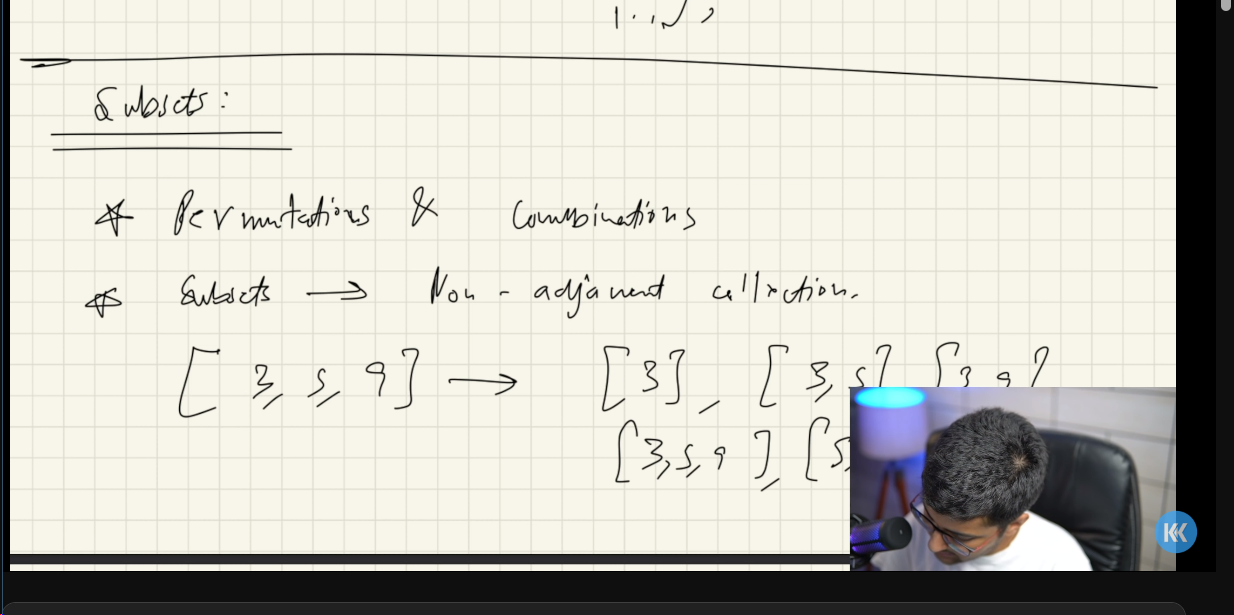 Subsets:
* Permutations & Combinations
* Subsets → Non-adjanent collection.
[3, 5, 9] → [3], [3, 5] [3 9]
[3, 5, 9], [5,